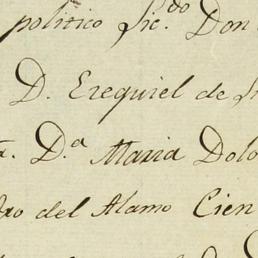 politico Lic.do Don
D. Ezequiel de
D.a Maria Dolo
dro del Alamo Cien